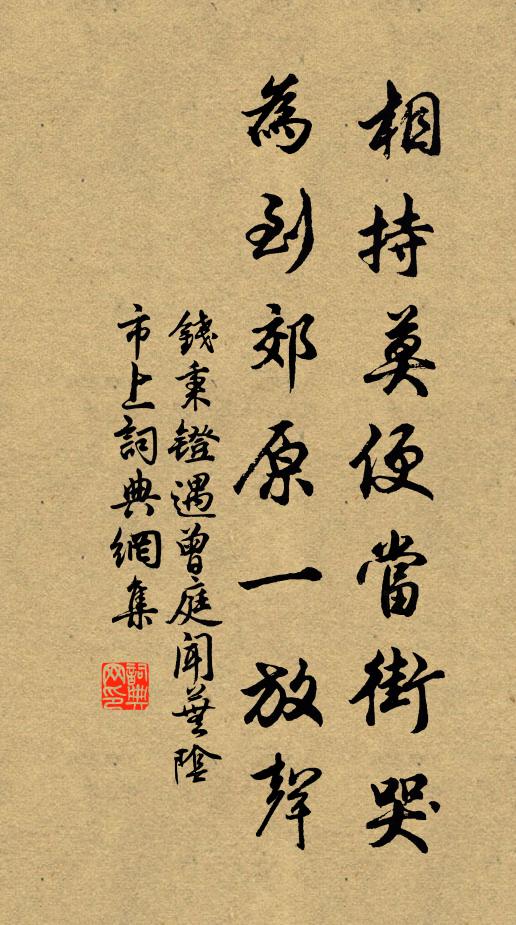 相持莫便當街哭
為到郊原一放聲
錢秉鐙遇曾庭聞蕪陰
市上詞典網集
詞典
网印